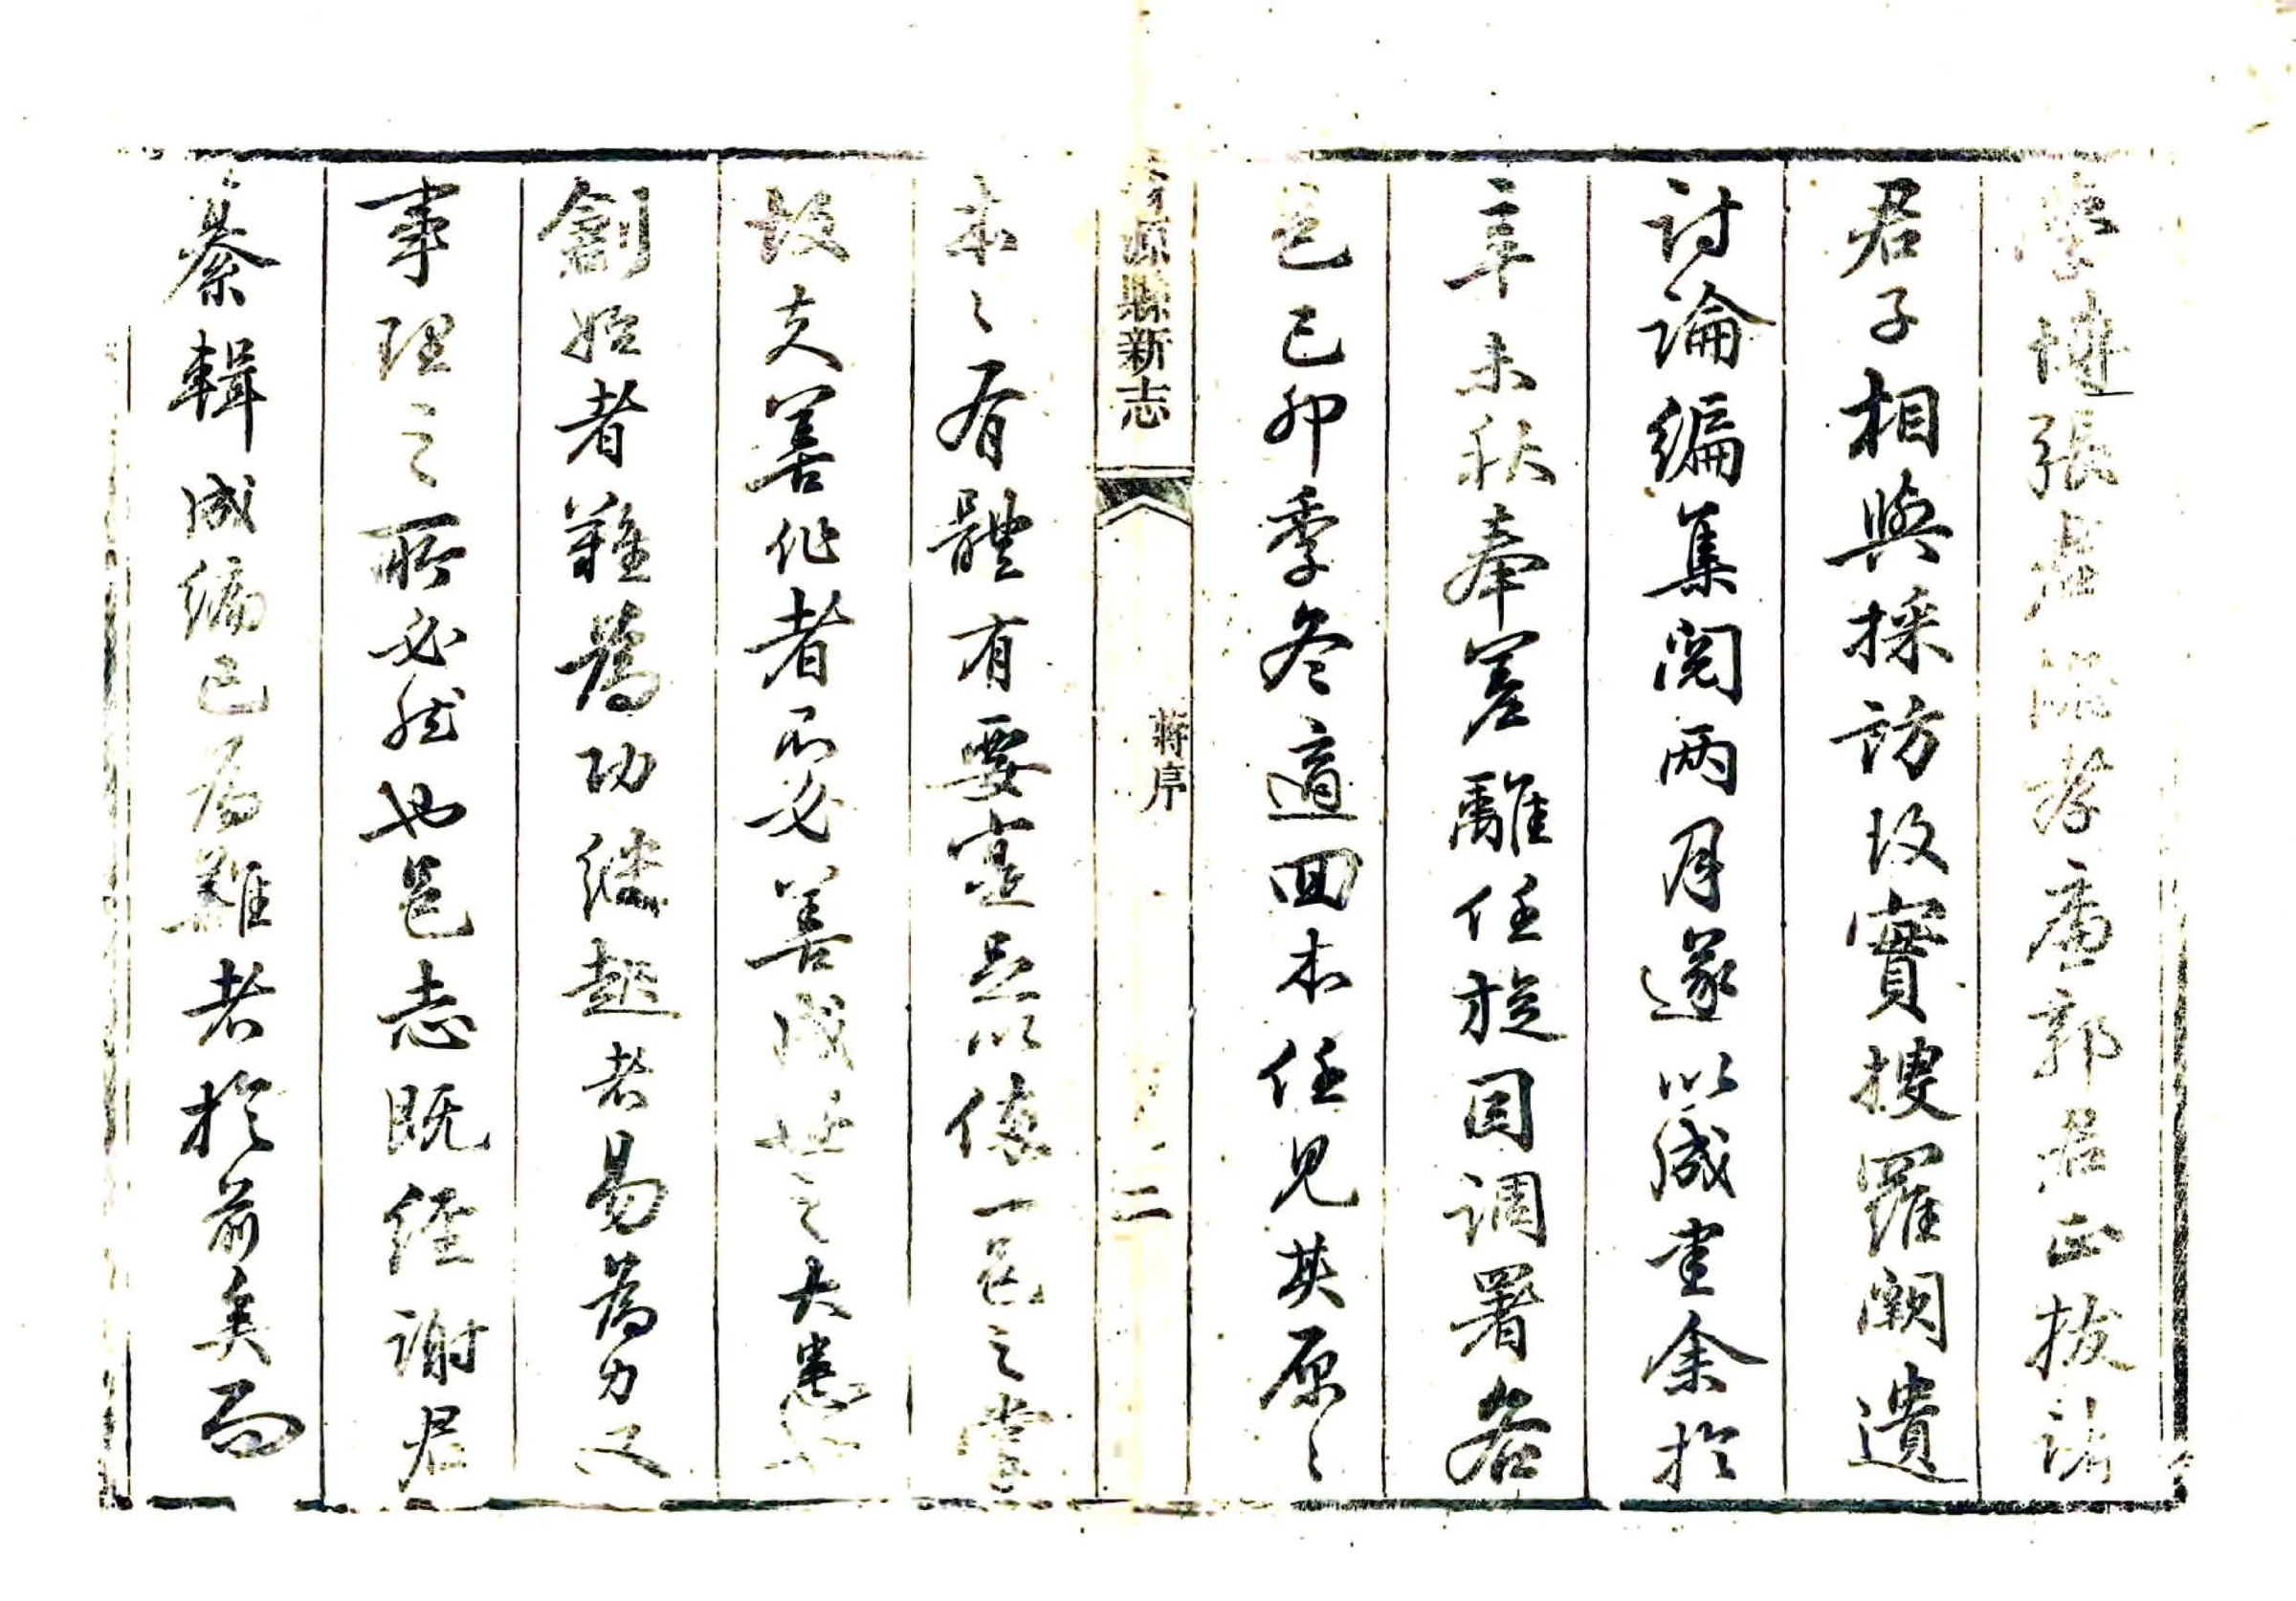 學博張君孝廉郭君正拔諸
君子相與採訪攷實搜羅闕遺
討論編集閱兩月遂以成書余於
辛未秋奉差離任旋因調署各
邑己卯季冬適回本任見其原〻
源縣新志
蔣序
二
本〻有體有要寔足以傳一邑之掌
故夫善作者不必善成世之大患也
創始者難為功繼起者易為力又
事理之所必然也邑志既經謝君
纂輯成編已為難者於前矣而